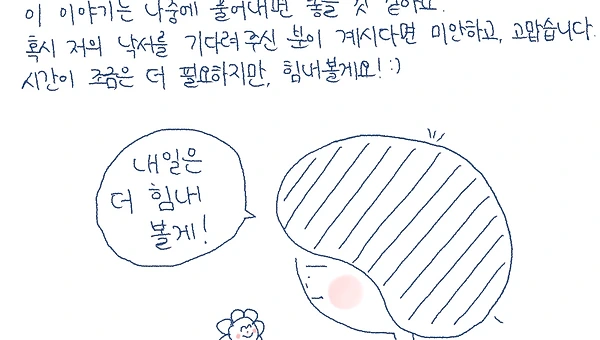 이 이야기는 나중에 풀어내면 좋을 것 같아요.
혹시 저의 낙서를 기다려주신 분이 계시다면 미안하고, 고맙습니다.
시간이 조금은 더 필요하지만, 힘내볼게요! :)
내일은
더 힘내
볼게!